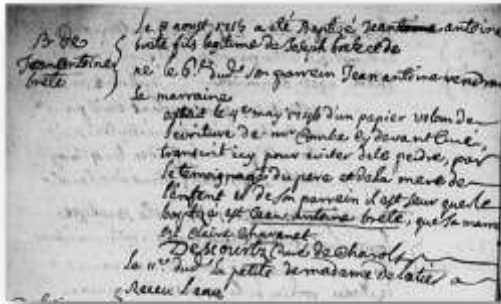 B de
Jean antoine
brete
le 8 aoust 1715 a été Baptizé Jean antoine
brete fils legitime de Joseph brete et de
né le 6e dud. Son parrein Jean antoine
la marraine
le 4e may d'un papier volant de
l'ecriture de mr Combe cy devant Curé,
transcrit icy pour eviter de le perdre, par
le temoignage du pere et de la mere de
l'enfent et de son parrein il est seur que le
baptizé est Jean antoine brete, que sa
est Claire Chavanet
Descourtz Curé de Charols
le 11e dud. la petite de madame de a
Receu l'eau